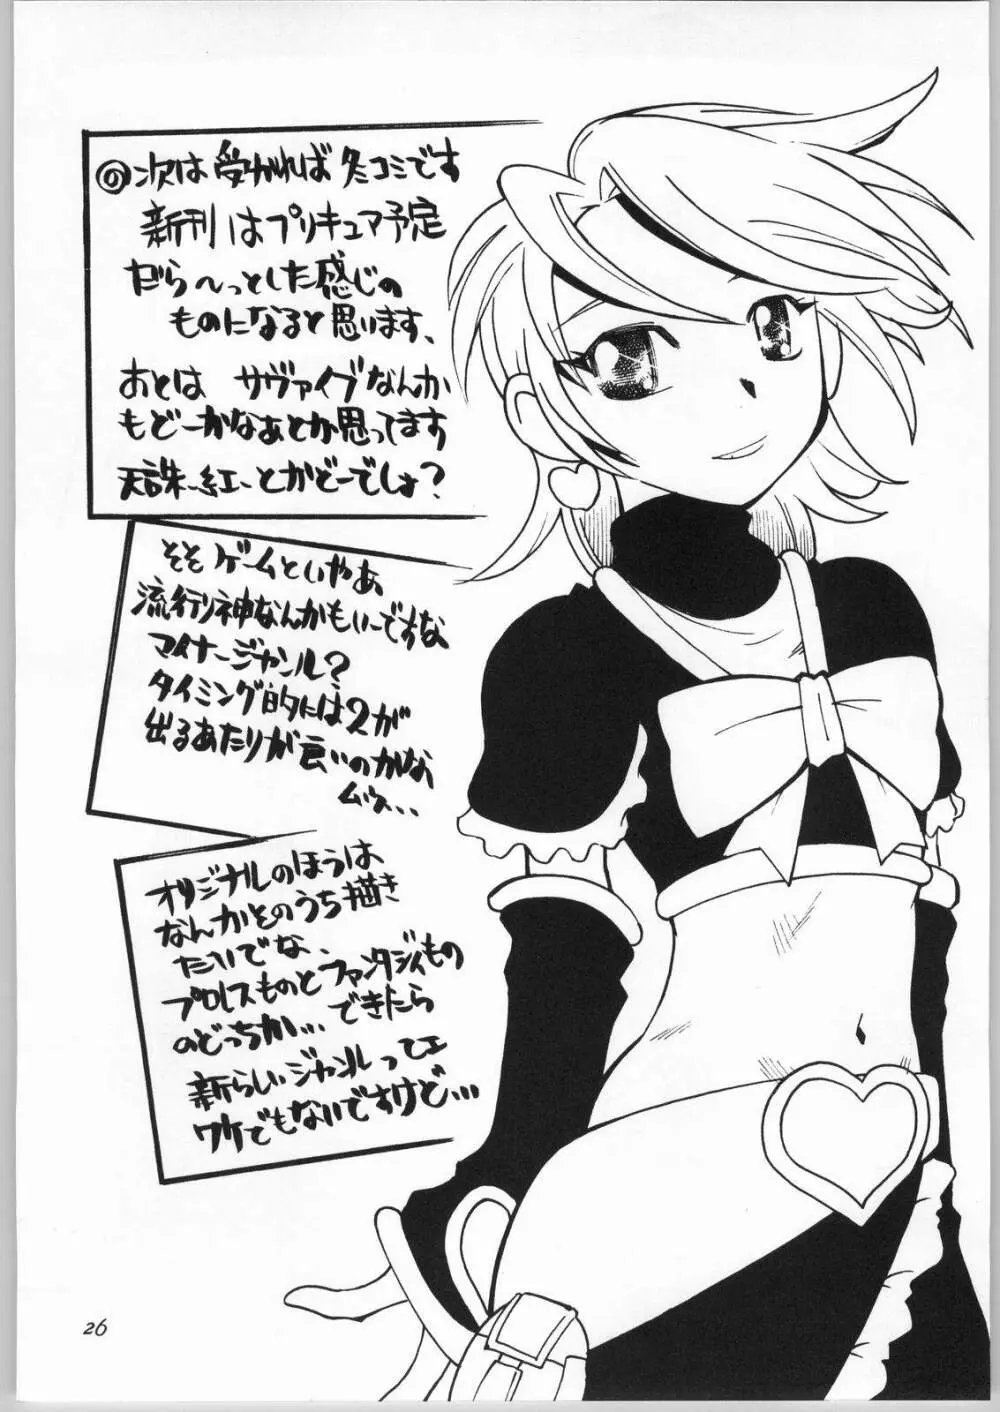 ◎次は受かれば冬コミです
新刊はプリキュア予定
だら〜っとした感じの
ものになると思います、
おとは サヴァイブなんか
もどーかなぁとか思ってます
天誅-紅-とかどーでしょ?
そそゲームといやあ
流行り神なんかもいーですな
マイナージャンル?
タイミング的には2が
出るあたりが良いのかな
ムゥ…
オリジナルのほうは
なんかそのうち描き
たいでな、
プロレスものとファンタジィもの
のどっちか… できたら
新らしいジャンルってェ
ワケでもないですけど…
26